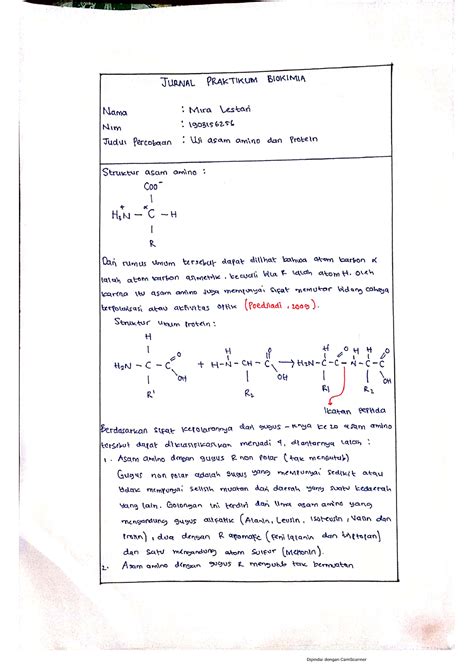 JURNAL PRAKTIKUM BIOKIMIA
Nama : Mira Lestari
Nim : 1903156256
Judul Percobaan : Uji asam amino dan Protein
Struktur asam amino :
COO⁻
H₃N⁺ - C α - H
R
Dari rumus umum tersebut dapat dilihat bahwa atom karbon α
ialah atom karbon asimetrik, kecuali bila R ialah atom H. oleh
karena itu asam amino juga mempunyai sifat memutar bidang cahaya
terpolarisasi atau aktivitas optik (Poedjiadi, 2009).
Struktur umum protein :
H
H₂N - C - C O OH + H - N - CH - C O OH → H₂N - C - C - N - C - C O OH
R¹ H R₂ R1 R₂
Ikatan peptida
Berdasarkan sifat kepolarannya dari gugus -R nya ke 20 asam amino
tersebut dapat diklasifikasikan menjadi 4, diantarnya ialah :
1. Asam amino dengan gugus R non polar (tak mengutub)
Gugus non polar adalah gugus yang mempunyai sedikit atau
tidak mempunyai selisih muatan dari daerah yang satu kedaerah
yang lain. Golongan ini terdiri dari lima asam amino yang
mengandung gugus alifatik (Alanin, Leusin, Isoleusin, Valin dan
Prolin), dua dengan R apomatic (Fenilalanin dan triptopan)
dan satu mengandung atom sulfur (Metionin).
2. Asam amino dengan gugus R mengutub tak bermuatan
Dipindai dengan CamScanner